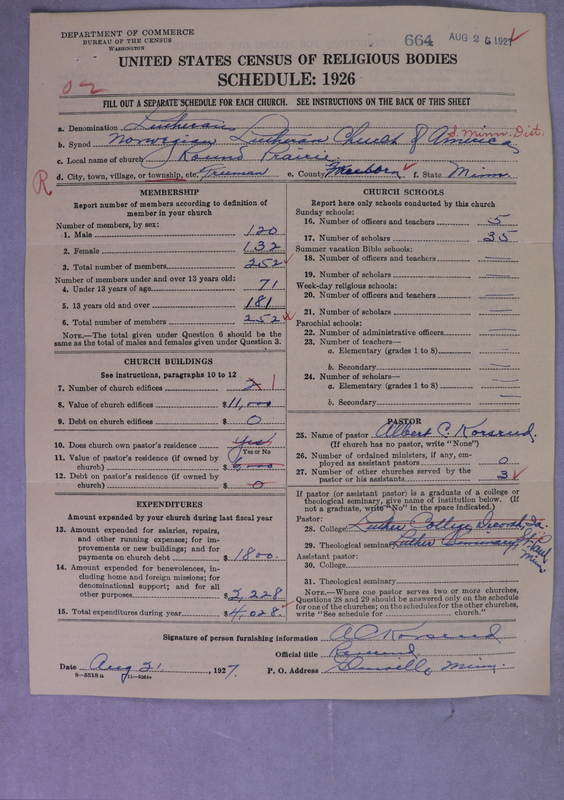 DEPARTMENT OF COMMERCE
BUREAU OF THE CENSUS
WASHINGTON
664 AUG 26 1927
UNITED STATES CENSUS OF RELIGIOUS BODIES
SCHEDULE: 1926
FILL OUT A SEPARATE SCHEDULE FOR EACH CHURCH. SEE INSTRUCTIONS ON THE BACK OF THIS SHEET
a. Denomination Lutheran
b. Synod Norwegian Lutheran Church of America S. Minn. Dist.
c. Local name of church Round Prairie
R d. City, town, village, or township, etc. Freeman e. County Freeborn f. State Minn.
MEMBERSHIP
Report number of members according to definition of
member in your church
Number of members, by sex:
1. Male 120
2. Female 132
3. Total number of members 252
Number of members under and over 13 years old:
4. Under 13 years of age 71
5. 13 years old and over 181
6. Total number of members 252
NOTE.—The total given under Question 6 should be the
same as the total of males and females given under Question 3.
CHURCH BUILDINGS
See instructions, paragraphs 10 to 12
7. Number of church edifices 2 1
8. Value of church edifices $11,000
9. Debt on church edifices $ 0
10. Does church own pastor's residence Yes
Yes or No
11. Value of pastor's residence (if owned by
church) $6,000
12. Debt on pastor's residence (if owned by
church) $ 0
EXPENDITURES
Amount expended by your church during last fiscal year
13. Amount expended for salaries, repairs,
and other running expenses; for im-
provements or new buildings; and for
payments on church debt $1800.
14. Amount expended for benevolences, in-
cluding home and foreign missions; for
denominational support; and for all
other purposes $2,228
15. Total expenditures during year $4,028
CHURCH SCHOOLS
Report here only schools conducted by this church
Sunday schools:
16. Number of officers and teachers 5
17. Number of scholars 35
Summer vacation Bible schools:
18. Number of officers and teachers —
19. Number of scholars —
Week-day religious schools:
20. Number of officers and teachers —
21. Number of scholars —
Parochial schools:
22. Number of administrative officers —
23. Number of teachers—
a. Elementary (grades 1 to 8) —
b. Secondary —
24. Number of scholars—
a. Elementary (grades 1 to 8) —
b. Secondary —
PASTOR
25. Name of pastor Albert C. Korsrud.
(If church has no pastor, write "None")
26. Number of ordained ministers, if any, em-
ployed as assistant pastors 0
27. Number of other churches served by the
pastor or his assistants 3
If pastor (or assistant pastor) is a graduate of a college or
theological seminary, give name of institution below. (If
not a graduate, write "No" in the space indicated.)
Pastor:
28. College Luther College, Decorah, Ia.
29. Theological seminary Luther Seminary St. Paul Minn.
Assistant pastor:
30. College
31. Theological seminary
NOTE.—Where one pastor serves two or more churches,
Questions 28 and 29 should be answered only on the schedule
for one of the churches; on the schedules for the other churches,
write "See schedule for church."
Signature of person furnishing information A C Korsrud
Official title
Date Aug 21, 1927. P. O. Address Minn.
8—5518a 11—9264